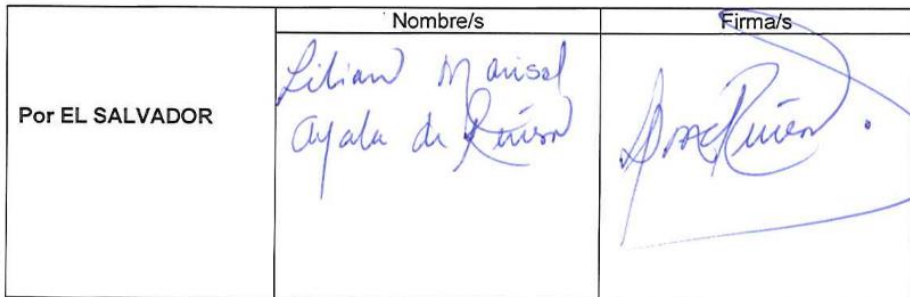 Nombre/s
Firma/s
Por EL SALVADOR
Lilian Marisol
Ayala de